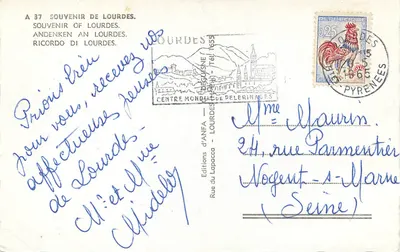 A 37 SOUVENIR DE LOURDES.
SOUVENIR OF LOURDES.
ANDENKEN AN LOURDES.
RICORDO DI LOURDES.
Prions bien
pour vous, recevez nos
affectueuses pensées
de Lourdes.
Mr et Mme
Midele
Editions d'ANFA
Rue du Lapacca - LOURDES
LOURDES
CENTRE MONDIAL DE PELERINAGES
0,25
1965
PYRENEES
Mme Maurin.
24, rue Parmentier
Nogent-s-Marne
(Seine)